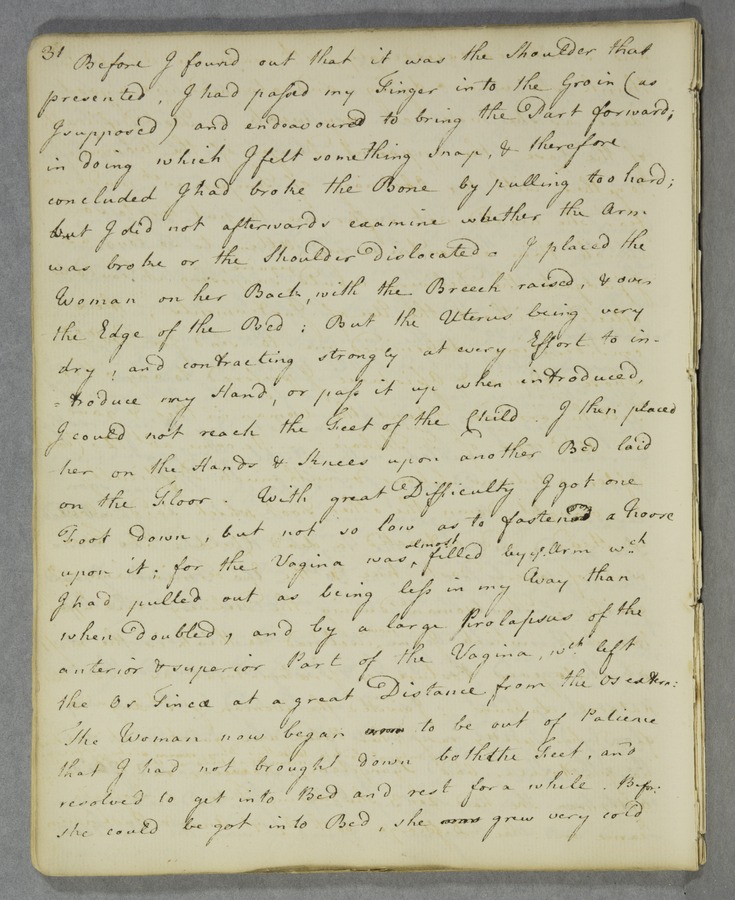 31 Before I found out that it was the Shoulder that
presented, I had passed my Finger into the Groin (as
I supposed) and endeavoured to bring the Part forward;
in doing which I felt something snap, & therefore
concluded I had broke the Bone by pulling too hard;
but I did not afterwards examine whether the Arm
was broke or the Shoulder Dislocated. I placed the
Woman on her Back, with the Breech raised, & over
the Edge of the Bed; But the Uterus being very
dry, and contracting strongly at every Effort to in-
-troduce my Hand, or pass it up when introduced,
I could not reach the Feet of the Child. I then placed
her on the Hands & Knees upon another Bed laid
on the Floor. With great Difficulty I got one
Foot down, but not so low as to fasten a Noose
upon it; for the Vagina was almost filled by ye. Arm wch
I had pulled out as being less in my Way than
when Doubled, and by a large Prolapsus of the
anterior & superior Part of the Vagina, wth left
the Os Tincæ at a great Distance from the Os extern:
The Woman now began to be out of Patience
that I had not brought down both the Feet, and
resolved to get into Bed and rest for a while. Befor:
she could be got into Bed, she grew very cold